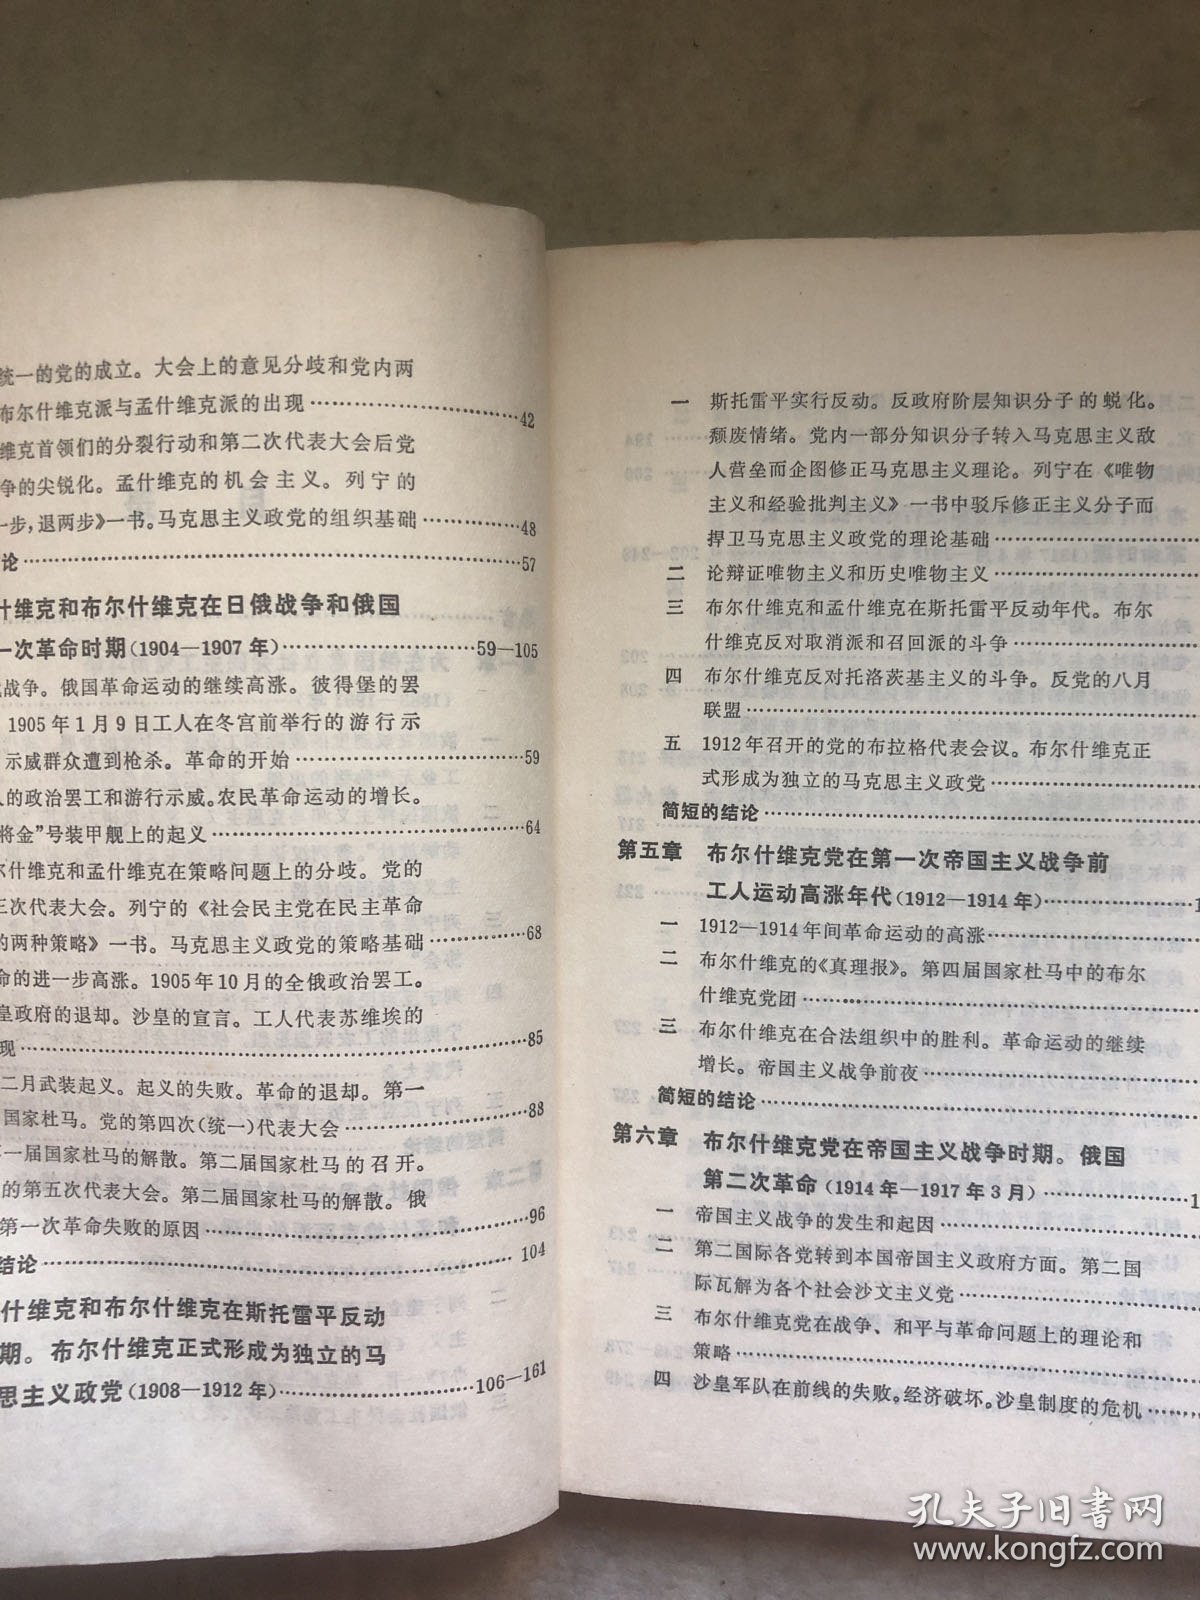 统一的党的成立。大会上的意见分歧和党内两
布尔什维克派与孟什维克派的出现……………………42
维克首领们的分裂行动和第二次代表大会后党
争的尖锐化。孟什维克的机会主义。列宁的
一步,退两步》一书。马克思主义政党的组织基础……………48
论……………………………………………………57
什维克和布尔什维克在日俄战争和俄国
一次革命时期(1904—1907年)……………………59—105
战争。俄国革命运动的继续高涨。彼得堡的罢
1905年1月9日工人在冬宫前举行的游行示
示威群众遭到枪杀。革命的开始……………………59
人的政治罢工和游行示威。农民革命运动的增长。
将金”号装甲舰上的起义……………………………64
尔什维克和孟什维克在策略问题上的分歧。党的
三次代表大会。列宁的《社会民主党在民主革命
的两种策略》一书。马克思主义政党的策略基础……………68
命的进一步高涨。1905年10月的全俄政治罢工。
皇政府的退却。沙皇的宣言。工人代表苏维埃的
现……………………………………………………85
二月武装起义。起义的失败。革命的退却。第一
国家杜马。党的第四次(统一)代表大会……………………88
一届国家杜马的解散。第二届国家杜马的召开。
的第五次代表大会。第二届国家杜马的解散。俄
第一次革命失败的原因……………………………………96
结论……………………………………………………104
什维克和布尔什维克在斯托雷平反动
期。布尔什维克正式形成为独立的马
思主义政党(1908—1912年)……………………106—161
一 斯托雷平实行反动。反政府阶层知识分子的蜕化。
颓废情绪。党内一部分知识分子转入马克思主义敌
人营垒而企图修正马克思主义理论。列宁在《唯物
主义和经验批判主义》一书中驳斥修正主义分子而
捍卫马克思主义政党的理论基础……………………
二 论辩证唯物主义和历史唯物主义……………………
三 布尔什维克和孟什维克在斯托雷平反动年代。布尔
什维克反对取消派和召回派的斗争……………………
四 布尔什维克反对托洛茨基主义的斗争。反党的八月
联盟……………………………………………………
五 1912年召开的党的布拉格代表会议。布尔什维克正
式形成为独立的马克思主义政党……………………
简短的结论……………………………………………………
第五章 布尔什维克党在第一次帝国主义战争前
工人运动高涨年代(1912—1914年)……………………1
一 1912—1914年间革命运动的高涨……………………
二 布尔什维克的《真理报》。第四届国家杜马中的布尔
什维克党团……………………………………………………
三 布尔什维克在合法组织中的胜利。革命运动的继续
增长。帝国主义战争前夜……………………………………
简短的结论……………………………………………………
第六章 布尔什维克党在帝国主义战争时期。俄国
第二次革命(1914年—1917年3月)……………………1
一 帝国主义战争的发生和起因……………………………
二 第二国际各党转到本国帝国主义政府方面。第二国
际瓦解为各个社会沙文主义党……………………………
三 布尔什维克党在战争、和平与革命问题上的理论和
策略……………………………………………………
四 沙皇军队在前线的失败。经济破坏。沙皇制度的危机………
孔夫子旧书网
www.kongfz.com